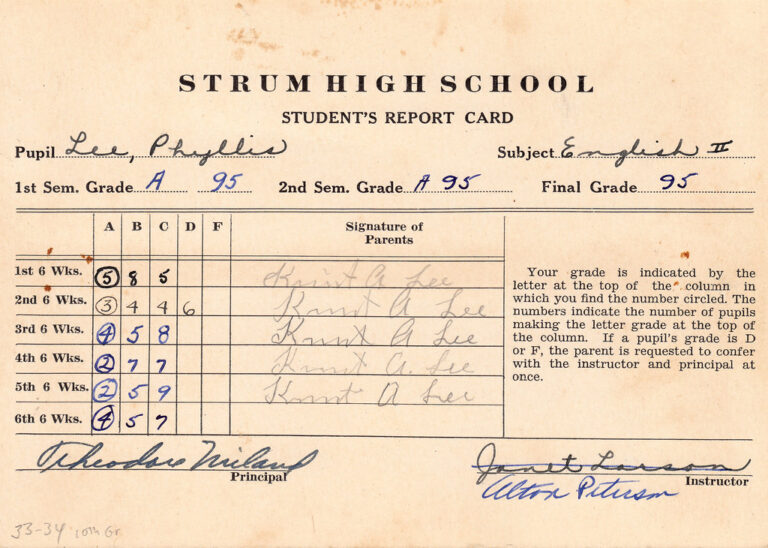 STRUM HIGH SCHOOL
STUDENT'S REPORT CARD
Pupil Lee, Phyllis Subject English II
1st Sem. Grade A 95 2nd Sem. Grade A 95 Final Grade 95
A B C D F Signature of Parents
1st 6 Wks. 5 8 5 Knut A Lee
2nd 6 Wks. 3 4 4 6 Knut A Lee
3rd 6 Wks. 4 5 8 Knut A Lee
4th 6 Wks. 2 7 7 Knut A. Lee
5th 6 Wks. 2 5 9 Knut A Lee
6th 6 Wks. 4 5 7
Your grade is indicated by the
letter at the top of the column in
which you find the number circled. The
numbers indicate the number of pupils
making the letter grade at the top of
the column. If a pupil's grade is D
or F, the parent is requested to confer
with the instructor and principal at
once.
Theodore Principal
Janet Larson Instructor
Alton Peterson
33-34 10th Gr.